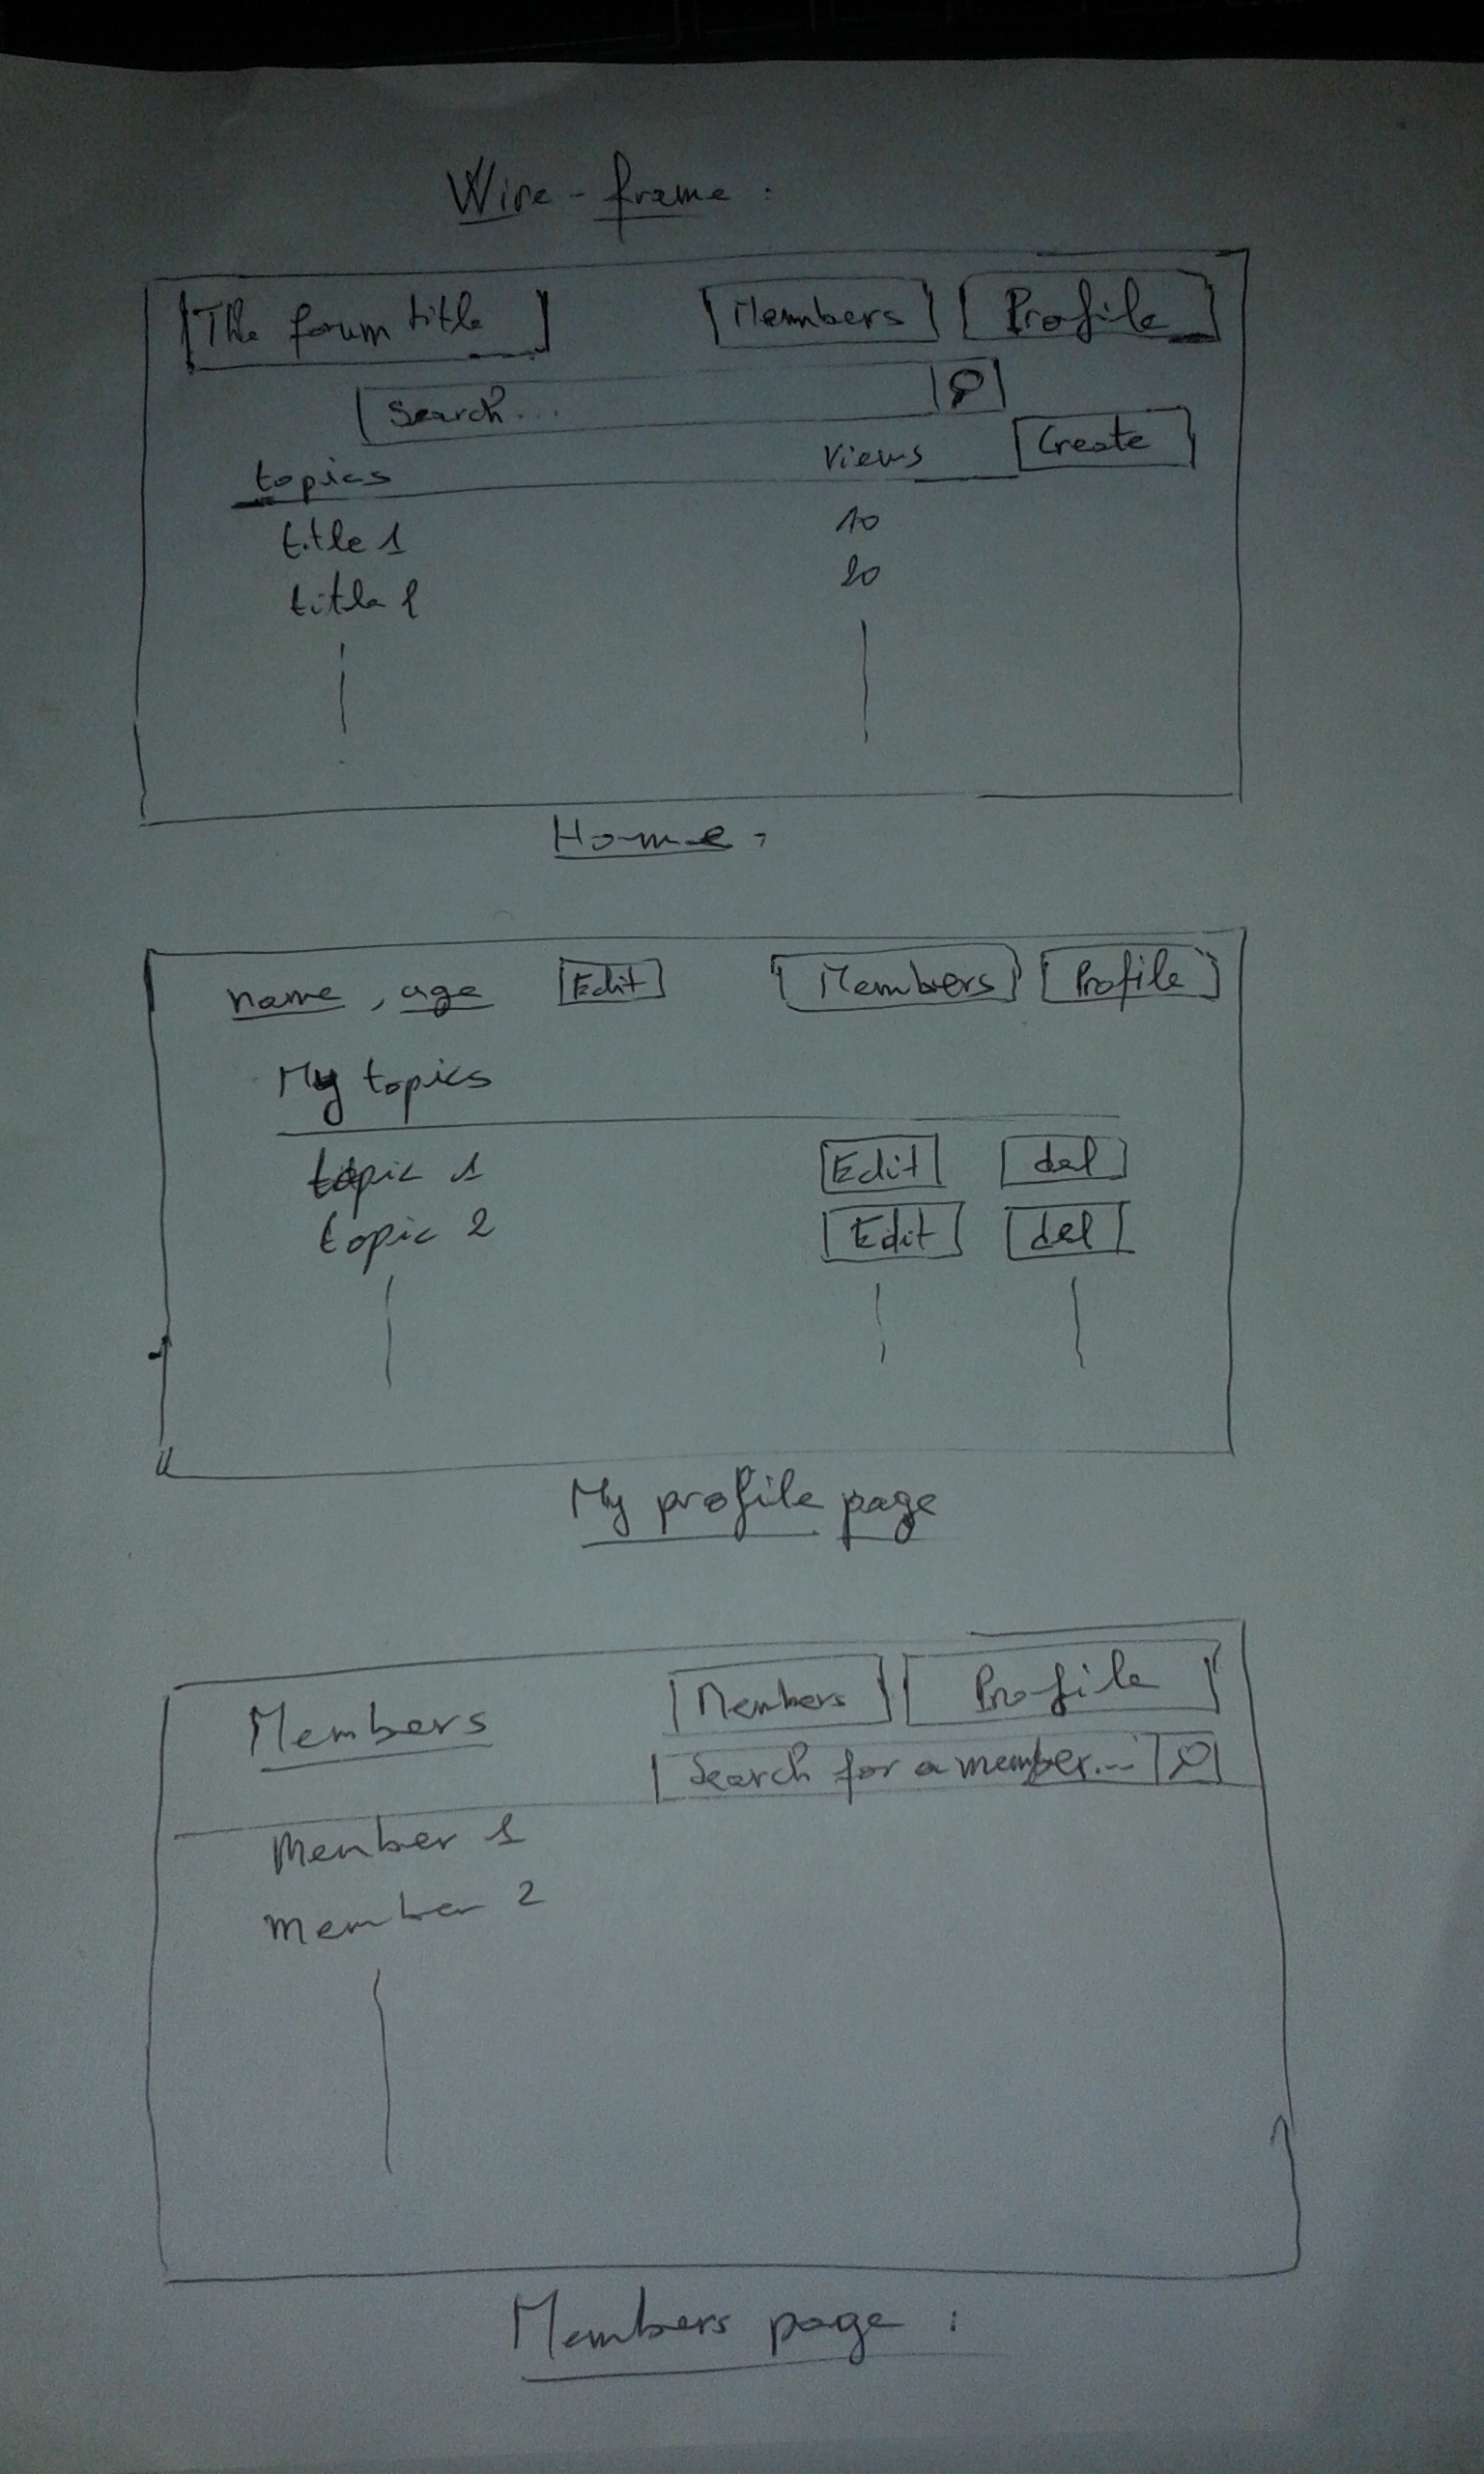 Wire-frame :
The forum title Members Profile
Search...
topics Views Create
title 1 10
title 2 20
Home :
name , age Edit Members Profile
My topics
topic 1 Edit del
topic 2 Edit del
My profile page
Members Members Profile
Search for a member...
Member 1
member 2
Members page :